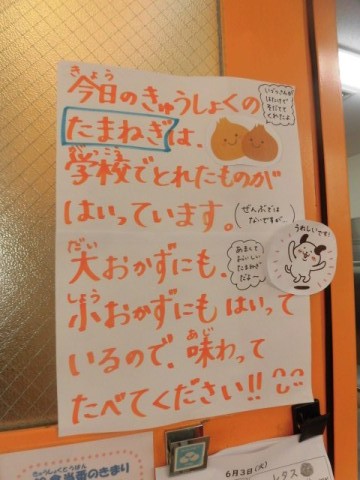 きょう
今日のきゅうしょくの
たまねぎは、
がっこう
学校でとれたものが
はいっています。
(ぜんぶでは
ないですが…)
うれしいです!
だい
大おかずにも、
あまくて
おいしい
たまねぎ
だよー
しょう
小おかずにもはいって
いるので、味わって
あじ
たべてください!!
きゅうしょくとうばん
当番のきまり
6月3日(火)
レタス